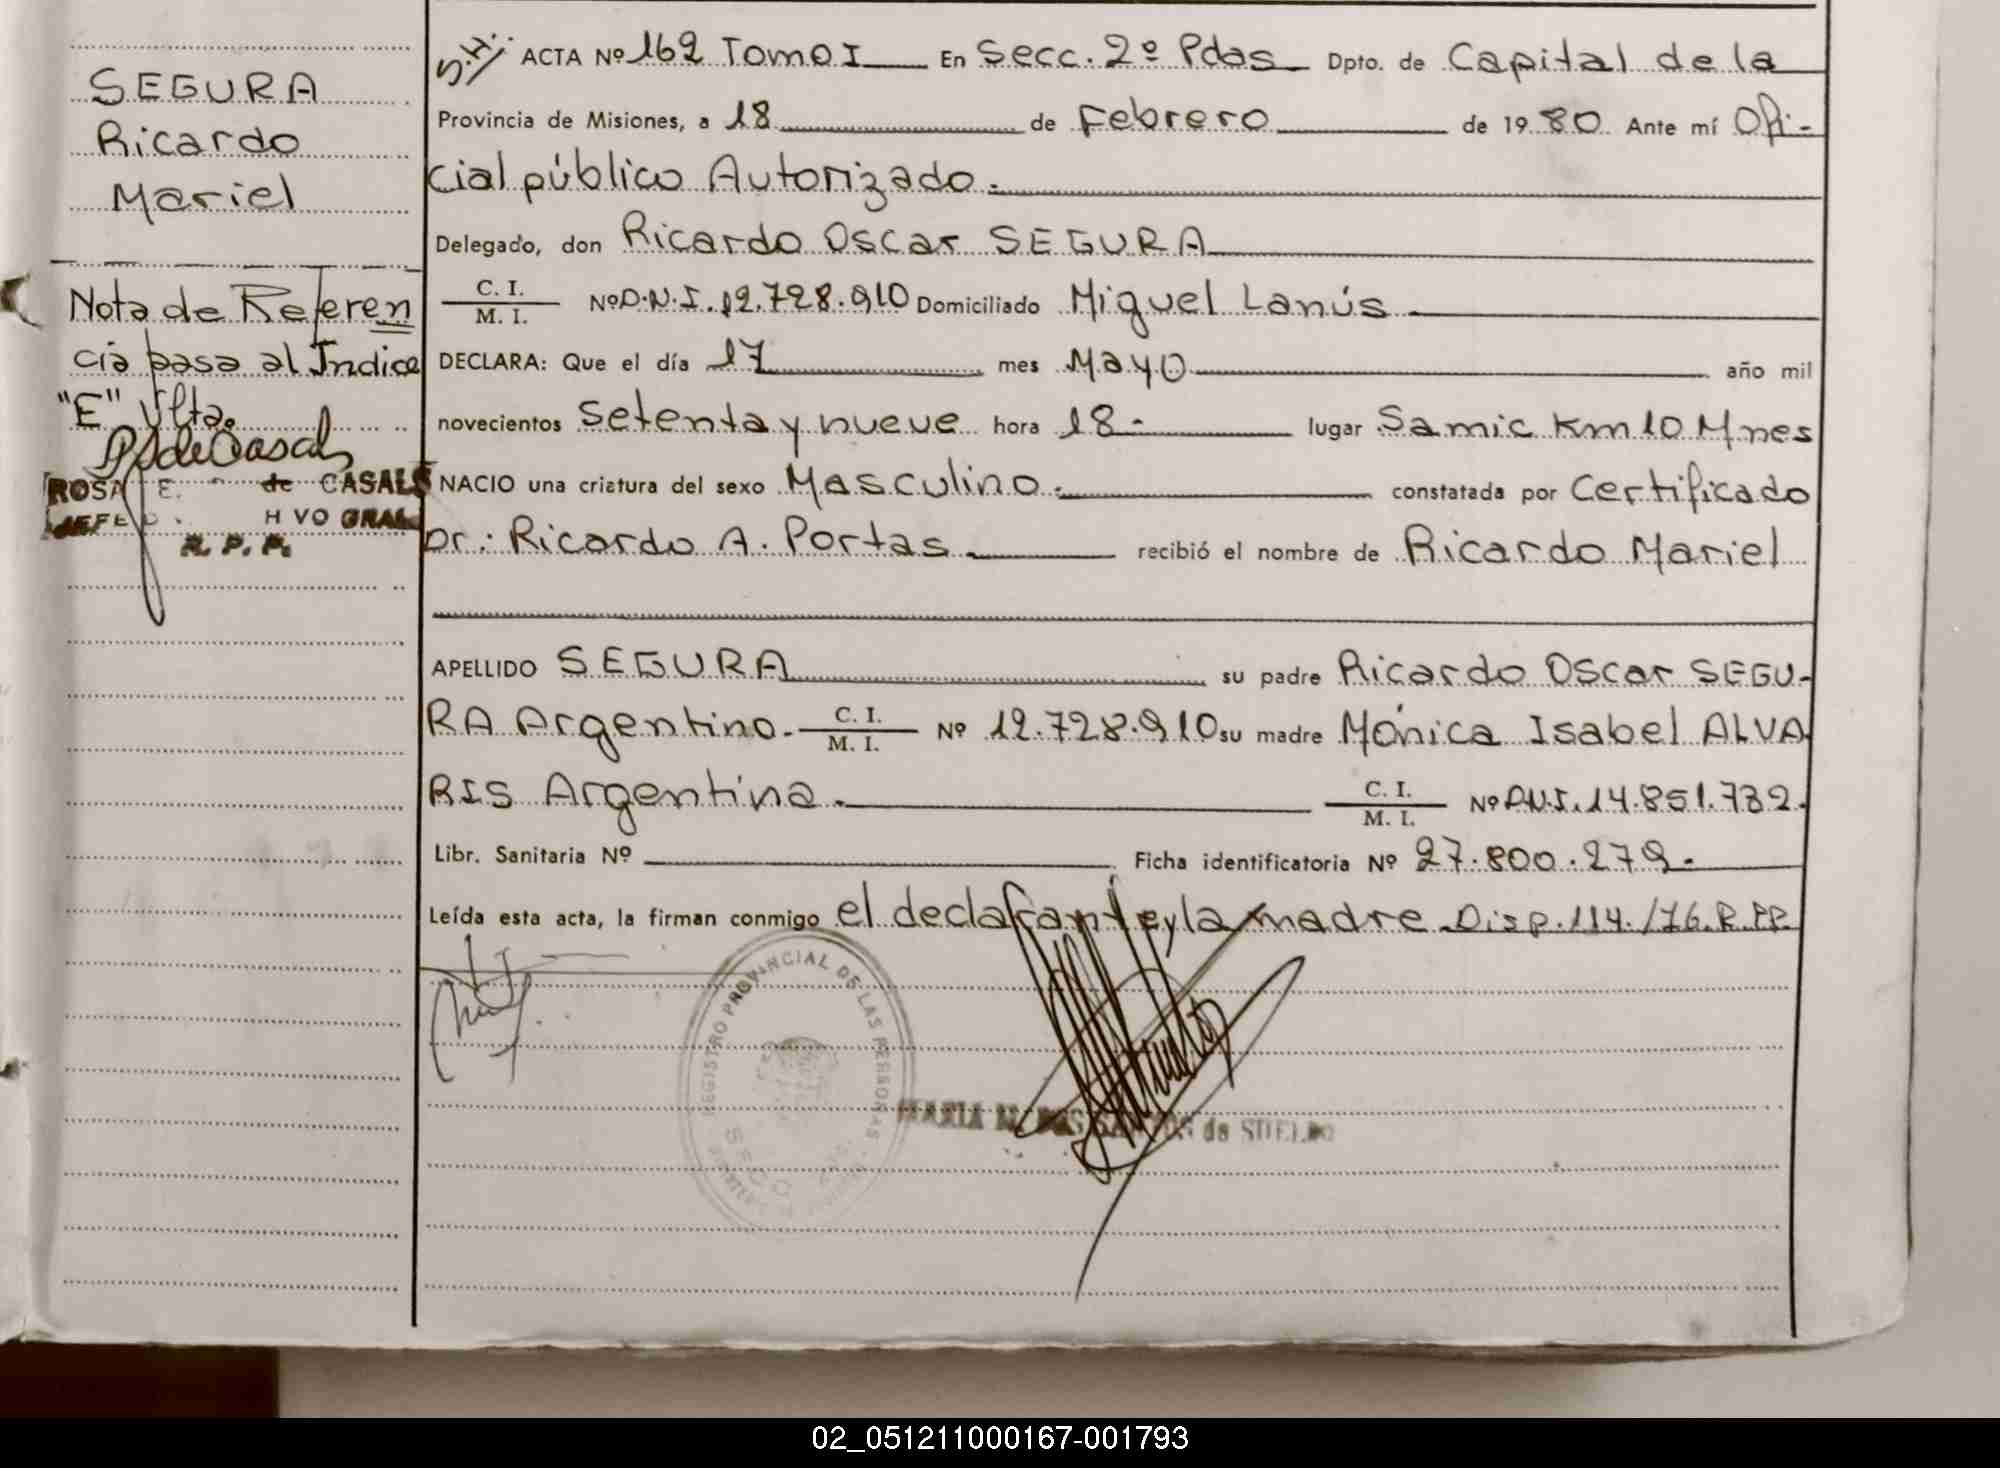 SEGURA
Ricardo
Mariel
Nota de Referen
cia pasa al Indice
"E" Ulta.
ROSA E. de CASALS
JEFE
R. P. P.
ACTA Nº 162 Tomo I En Secc. 2º Pdas Dpto. de Capital de la
Provincia de Misiones, a 18 de Febrero de 1980 Ante mí Ofi-
cial público Autorizado.
Delegado, don Ricardo Oscar SEGURA
C. I.
M. I.
Nº D.N.I. 12.728.910 Domiciliado Miguel Lanús
DECLARA: Que el día 17 mes Mayo año mil
novecientos Setenta y nueve hora 18.- lugar Samic Km 10 Mnes
NACIO una criatura del sexo Masculino.- constatada por Certificado
Dr: Ricardo A. Portas recibió el nombre de Ricardo Mariel
APELLIDO SEGURA su padre Ricardo Oscar SEGU-
RA Argentino.- C. I.
M. I.
Nº 12.728.910 su madre Mónica Isabel ALVA
RIS Argentina.- C. I.
M. I.
Nº D.N.I. 14.851.732.
Libr. Sanitaria Nº Ficha identificatoria Nº 27.800.279.-
Leída esta acta, la firman conmigo el declarante y la madre Disp. 114./76.R.PP.
REGISTRO PROVINCIAL DE LAS PERSONAS
MARIA DOS SANTOS de SUELDO
02_051211000167-001793